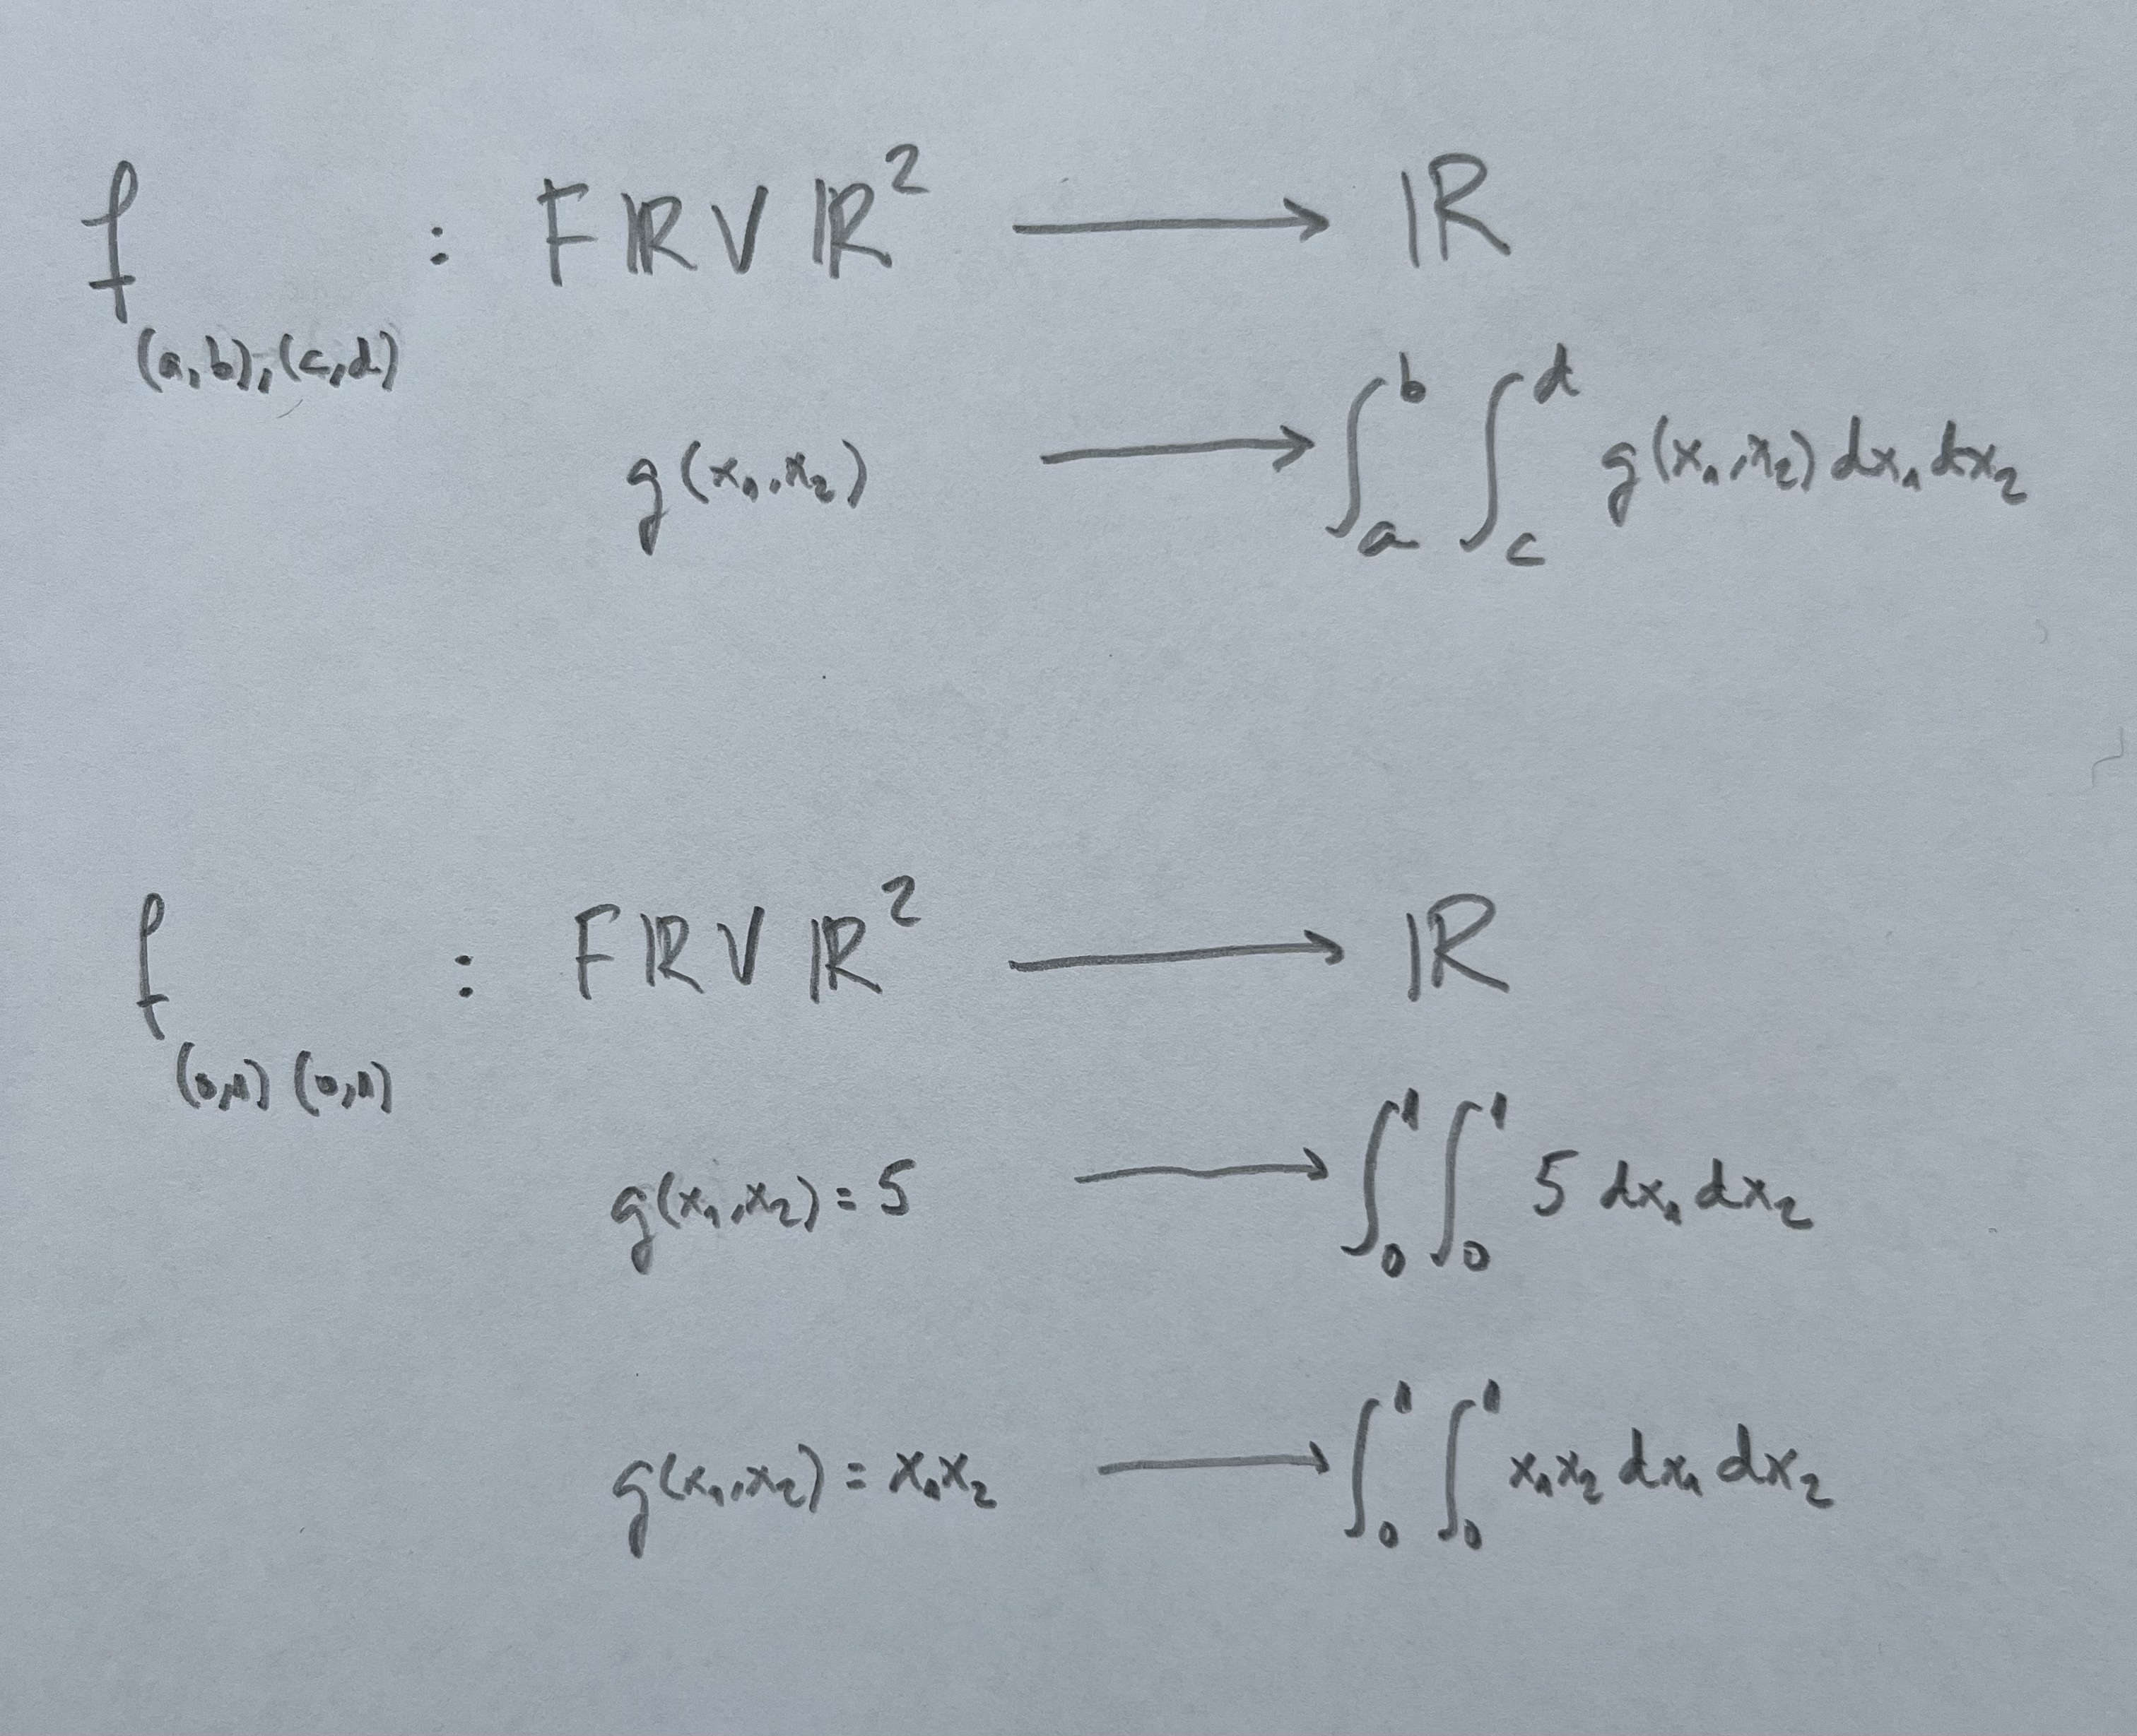 f_{(a,b),(c,d)} : FℝV ℝ² ⟶ ℝ
g(x₁,x₂) ⟶ ∫_a^b ∫_c^d g(x₁,x₂) dx₁ dx₂
f_{(0,1) (0,1)} : FℝV ℝ² ⟶ ℝ
g(x₁,x₂) = 5 ⟶ ∫_0^1 ∫_0^1 5 dx₁ dx₂
g(x₁,x₂) = x₁x₂ ⟶ ∫_0^1 ∫_0^1 x₁x₂ dx₁ dx₂